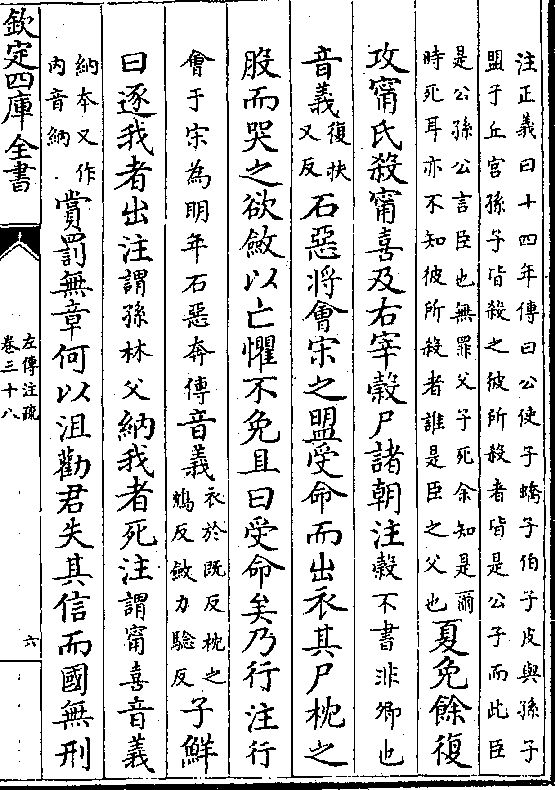 注正義曰十四年傳曰公使子蟜子伯子皮與孫子
盟于丘宮孫子皆殺之彼所殺者皆是公子而此臣
是公孫公言臣也無罪父子死余知是爾
時死耳亦不知彼所殺者誰是臣之父也
夏免餘復
攻甯氏殺甯喜及右宰榖尸諸朝注榖不書非卿也
音義復扶
又反
石惡將會宋之盟受命而出衣其尸枕之
股而哭之欲斂以亡懼不免且曰受命矣乃行注行
㑹于宋為明年石惡奔傳音義衣於既反枕之
鴆反斂力驗反
子鮮
曰逐我者出注謂孫林父納我者死注謂甯喜音義
納本又作
内音納
賞罰無章何以沮勸君失其信而國無刑
欽定四庫全書
左傳注疏
卷三十八
六